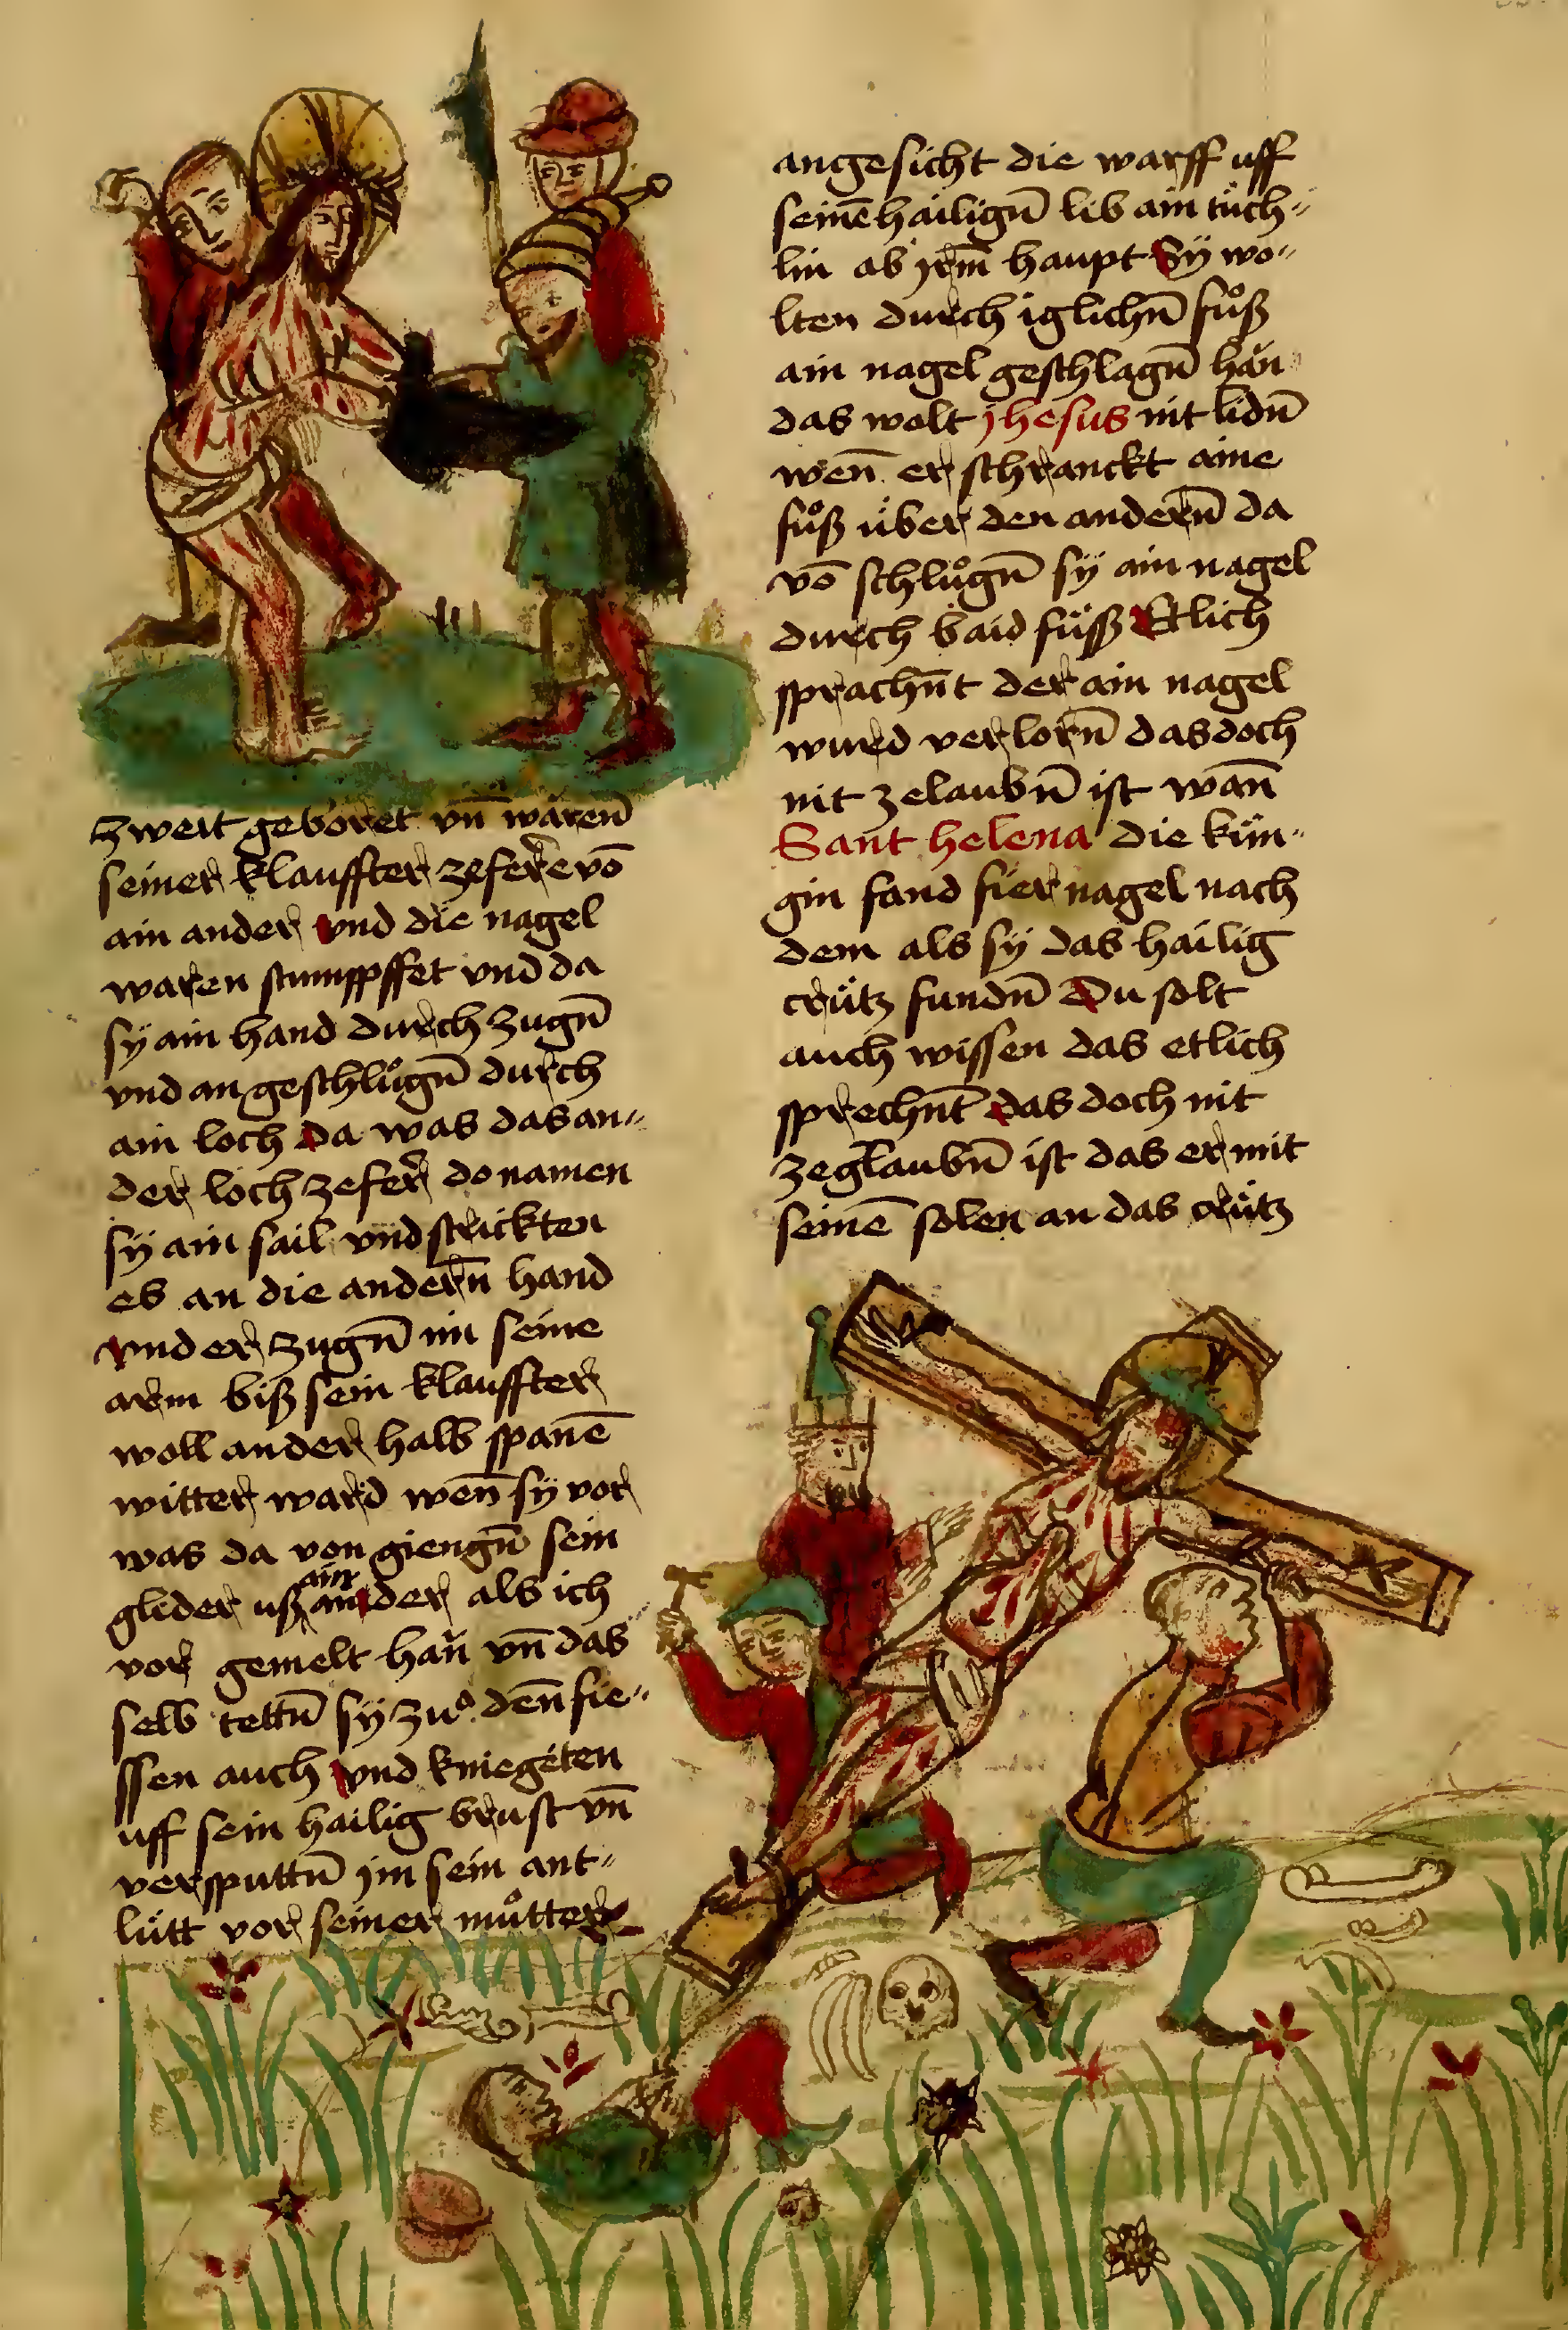 zweit geboret vn̄ waren̄
seiner klauffter zefere vō
ain ander vnd die nagel
waren stumppffet vnd da
sÿ ain hand durch zugn̄
vnd an geschlůgn̄ durch
ain loch da was das an〃
der loch zefer do namen
sÿ ain sail vnd strickten
es an die andern̄ hand
vnd er zugn̄ im seine
arm biß sein klauffter
woll ander halb spanē
witter ward wen̄ sÿ vor
was da von giengn̄ sein
glider uß ain ander als ich
vor gemelt han vn̄ das
selb tettn̄ sÿ zuͦ den̄ fie〃
ssen auch vnd kniegeten
uff sein hailig brust vn̄
versputtn̄ jm sein ant〃
lütt vor seiner můtter
angesicht die warff uff
seinē hailign̄ lib ain tüch〃
lin ab jrm̄ haupt Sÿ wo〃
lten durch iglichn̄ fůß
ain nagel geschlagn̄ han
das wolt jhesus nit lidn̄
wen̄ er schranckt aine
fůß über den andern̄ da
vō schlůgn̄ sÿ ain nagel
durch baid füß Etlich
sprachn̄t der ain nagel
wurd verlorn̄ das doch
nit zelaubn̄ ist wan̄
Sant helena die kün〃
gin fand fier nagel nach
dem als sÿ das hailig
crütz fundn̄ Du solt
auch wissen das etlich
sprechn̄t das doch nit
zeglaubn̄ ist das er mit
seinē solen an das crütz